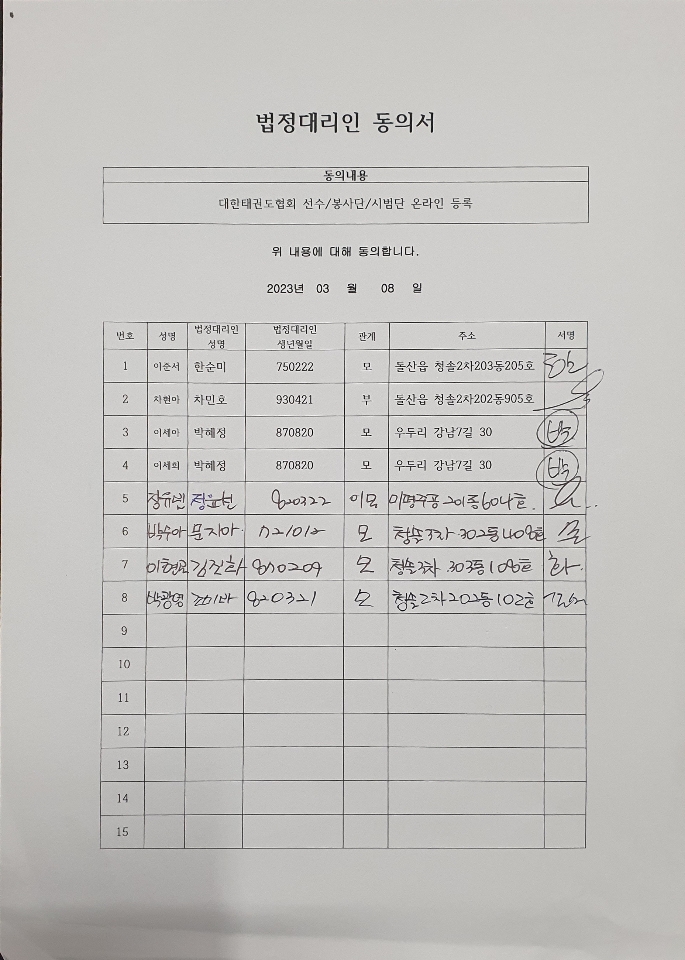 법정대리인 동의서
동의내용
대한태권도협회 선수/봉사단/시범단 온라인 등록
위 내용에 대해 동의합니다.
2023년 03 월 08 일
번호 성명 법정대리인 성명 법정대리인 생년월일 관계 주소 서명
1 이준서 한순미 750222 모 돌산읍 청솔2차203동205호
2 차현아 차민호 930421 부 돌산읍 청솔2차202동905호
3 이세아 박혜정 870820 모 우두리 강남7길 30 박
4 이세희 박혜정 870820 모 우두리 강남7길 30 박
5 정윤선 820322 이모 미평주공 201동604호.
6 박수아 문지아 721012 모 청솔3차 302동408호
7 김진화 870209 모 303동108호
8 박광명 820321 모 청솔2차202동102호
9
10
11
12
13
14
15